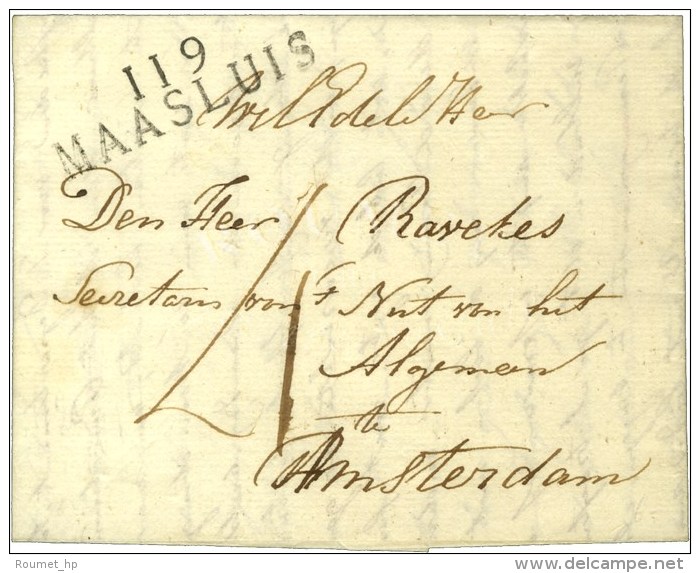 119
MAASLUIS
WelEdele Heer
Den Heer Ravekes
Secretaris van 't Nut van het
Algemeen
te
Amsterdam
Roumet_hp
www.delcampe.net